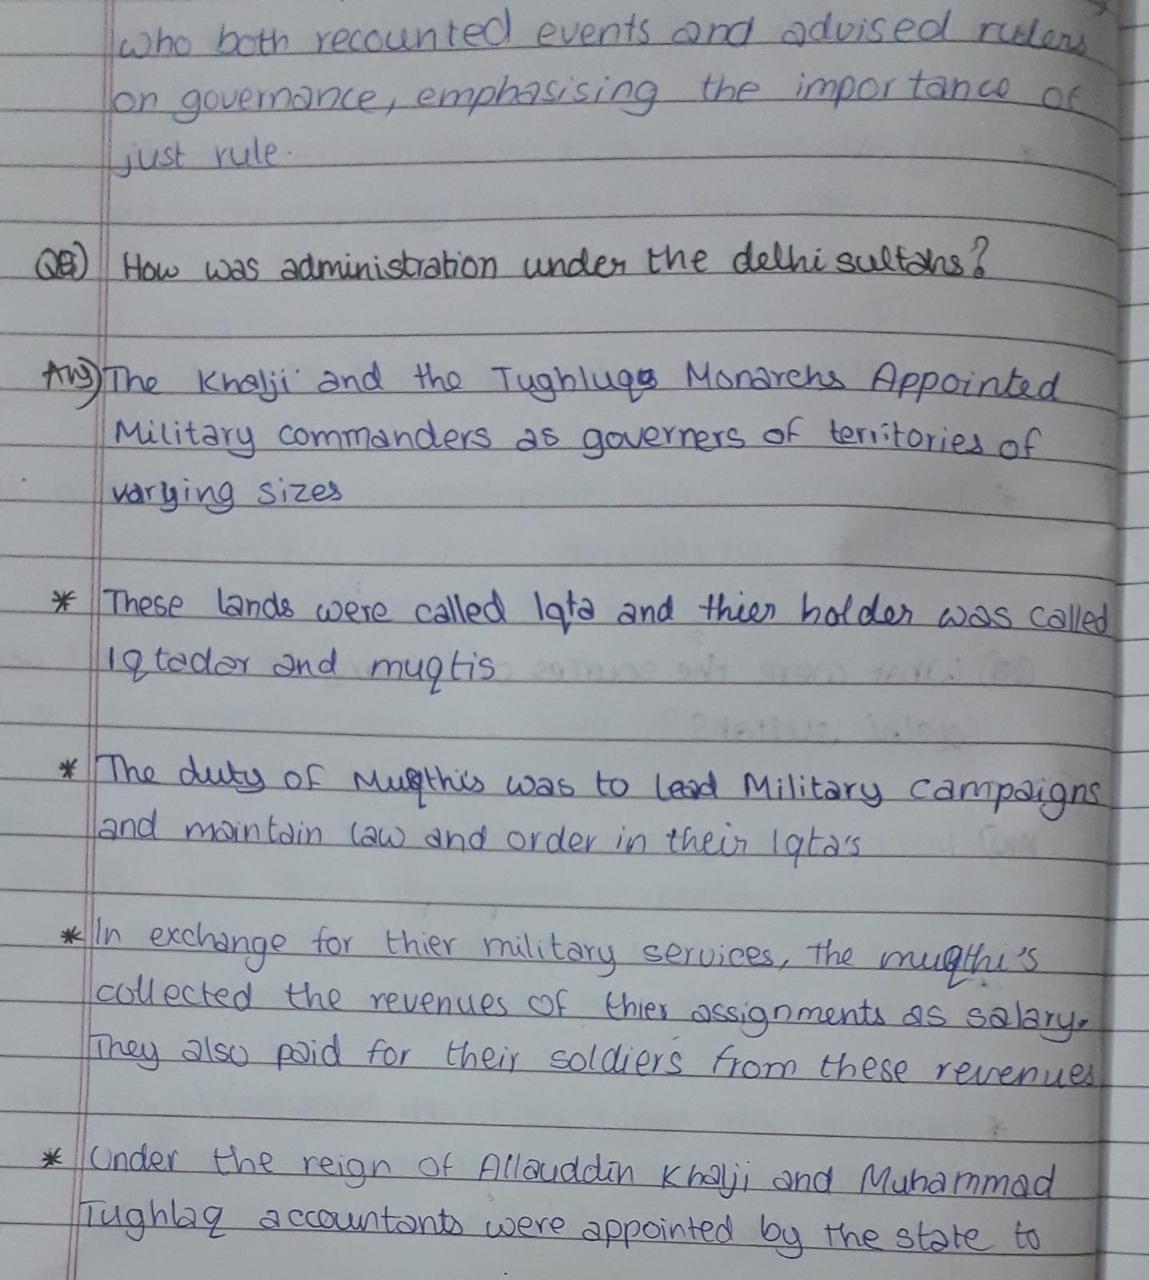 who both recounted events and advised rulers
on governance, emphasising the importance of
just rule.
How was administration under the delhi sultans?
Ans) The Khalji and the Tughluqs Monarchs Appointed
Military commanders as governers of territories of
varying sizes
* These lands were called Iqta and thier holder was called
Iqtador and muqtis
* The duty of Muqthi's was to lead Military campaigns
and maintain law and order in their Iqta's
* In exchange for thier military services, the muqthi's
collected the revenues of thier assignments as salary.
They also paid for their soldiers from these revenues
* Under the reign of Allauddin Khalji and Muhammad
Tughlaq accountants were appointed by the state to